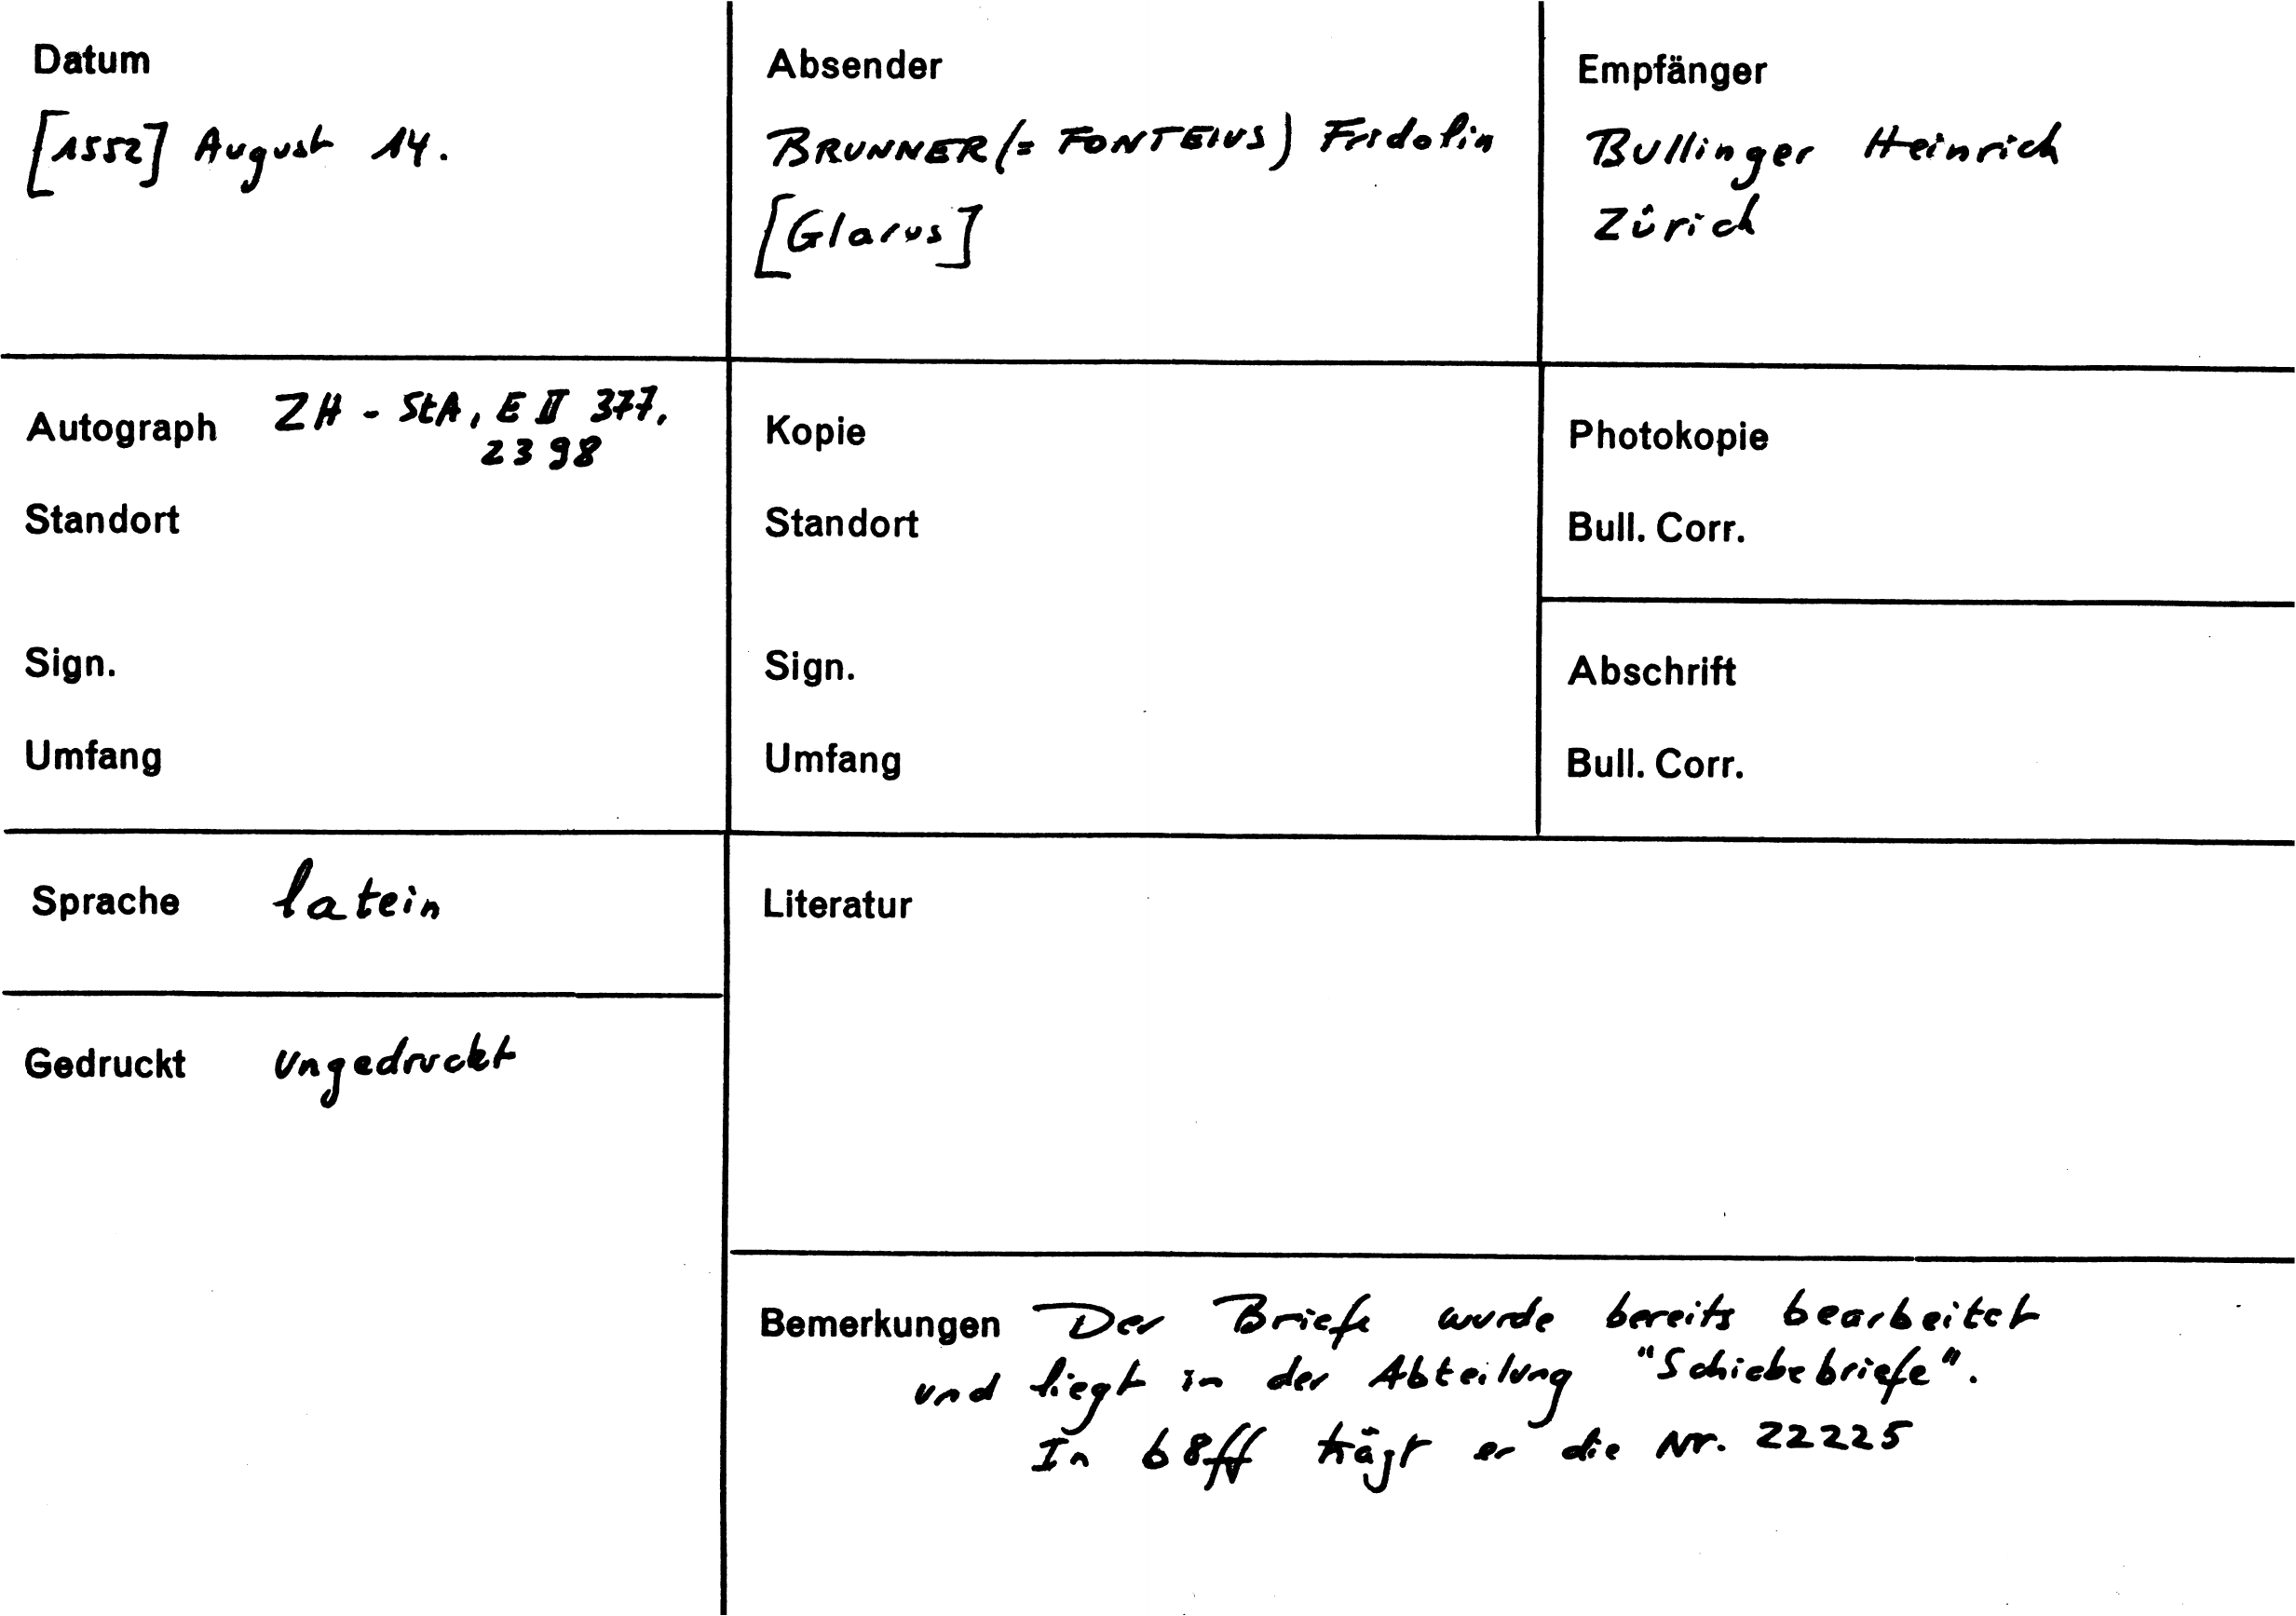 Datum
[1552] August 14.
Absender
BRUNNER (= FONTEIUS) Fridolin
[Glarus]
Empfänger
Bullinger Heinrich
Zürich
Autograph ZH - StA, E II 377,
2398
Standort
Sign.
Umfang
Kopie
Standort
Sign.
Umfang
Photokopie
Bull. Corr.
Abschrift
Bull. Corr.
Sprache latein
Gedruckt ungedruckt
Literatur
Bemerkungen Der Briefe wurde bereits bearbeitet
und liegt in der Abteilung "Schiebebriefe".
In b8ff trägt er die Nr. 22225